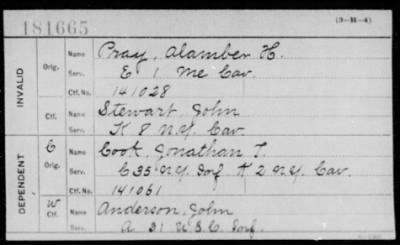 181665
(3-H-4)
INVALID
Orig.
Name Pray, Alamber H.
Serv. E 1 Me Cav.
Ctf. No. 141028
Ctf.
Name Stewart, John
Serv. K 8 N.Y. Cav.
DEPENDENT
C
Orig.
Name Cook, Jonathan T.
Serv. C 35 N.Y. Inf. K 2 N.Y. Cav.
Ctf. No. 141061
W
Ctf.
Name Anderson, John
Serv. A 31 U.S.C. Inf.